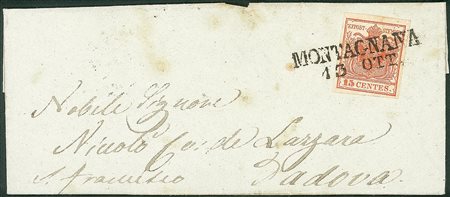 KKPOST STEMPEL
15 CENTES.
MONTAGNANA
13 OTT.
Nobile Signore
Nicolò Co: de Lazzara
S. Francesco Padova